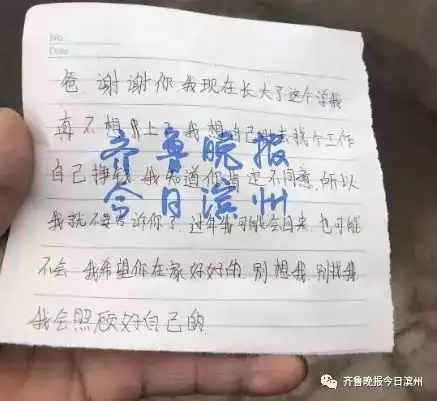 No.
Date
爸 谢谢你 我现在长大了这个学我
真不想上了我想自己出去找个工作
齐鲁晚报
自己挣钱 我知道你肯定不同意 所以
今日滨州
我就不要告诉你了 过年我可能会回来 也可能
不会 我希望你在家好好的 别想我 别找我
我会照顾好自己的.
齐鲁晚报今日滨州